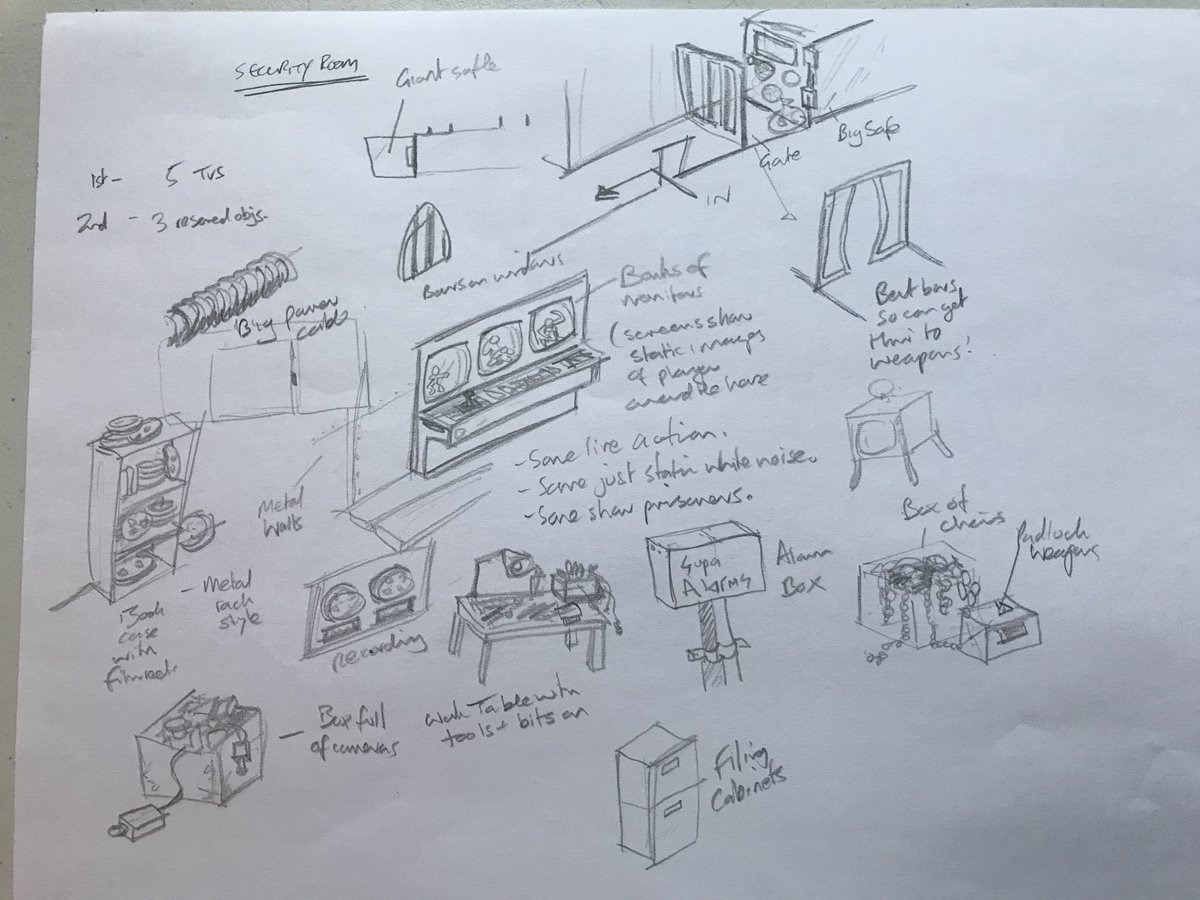 SECURITY ROOM
Giant safe
1st - 5 TVs
2nd - 3 reserved objs.
Big Safe
Gate
IN
Bars on windows
Big power
cable
Banks of
monitors
(screens show
static images
of player
around the house
- Some live action.
- Some just static white noise.
- Some show prisoners.
Bent bars
so can get
thru to
weapons!
Metal
walls
Book
case
with
film reel.
- Metal
rack
style
Recording
Supa
Alarms
Alarm
Box
Box of
chains
Padlock
weapons
- Box full
of cameras
Work Table with
tools + bits on
Filing
Cabinets